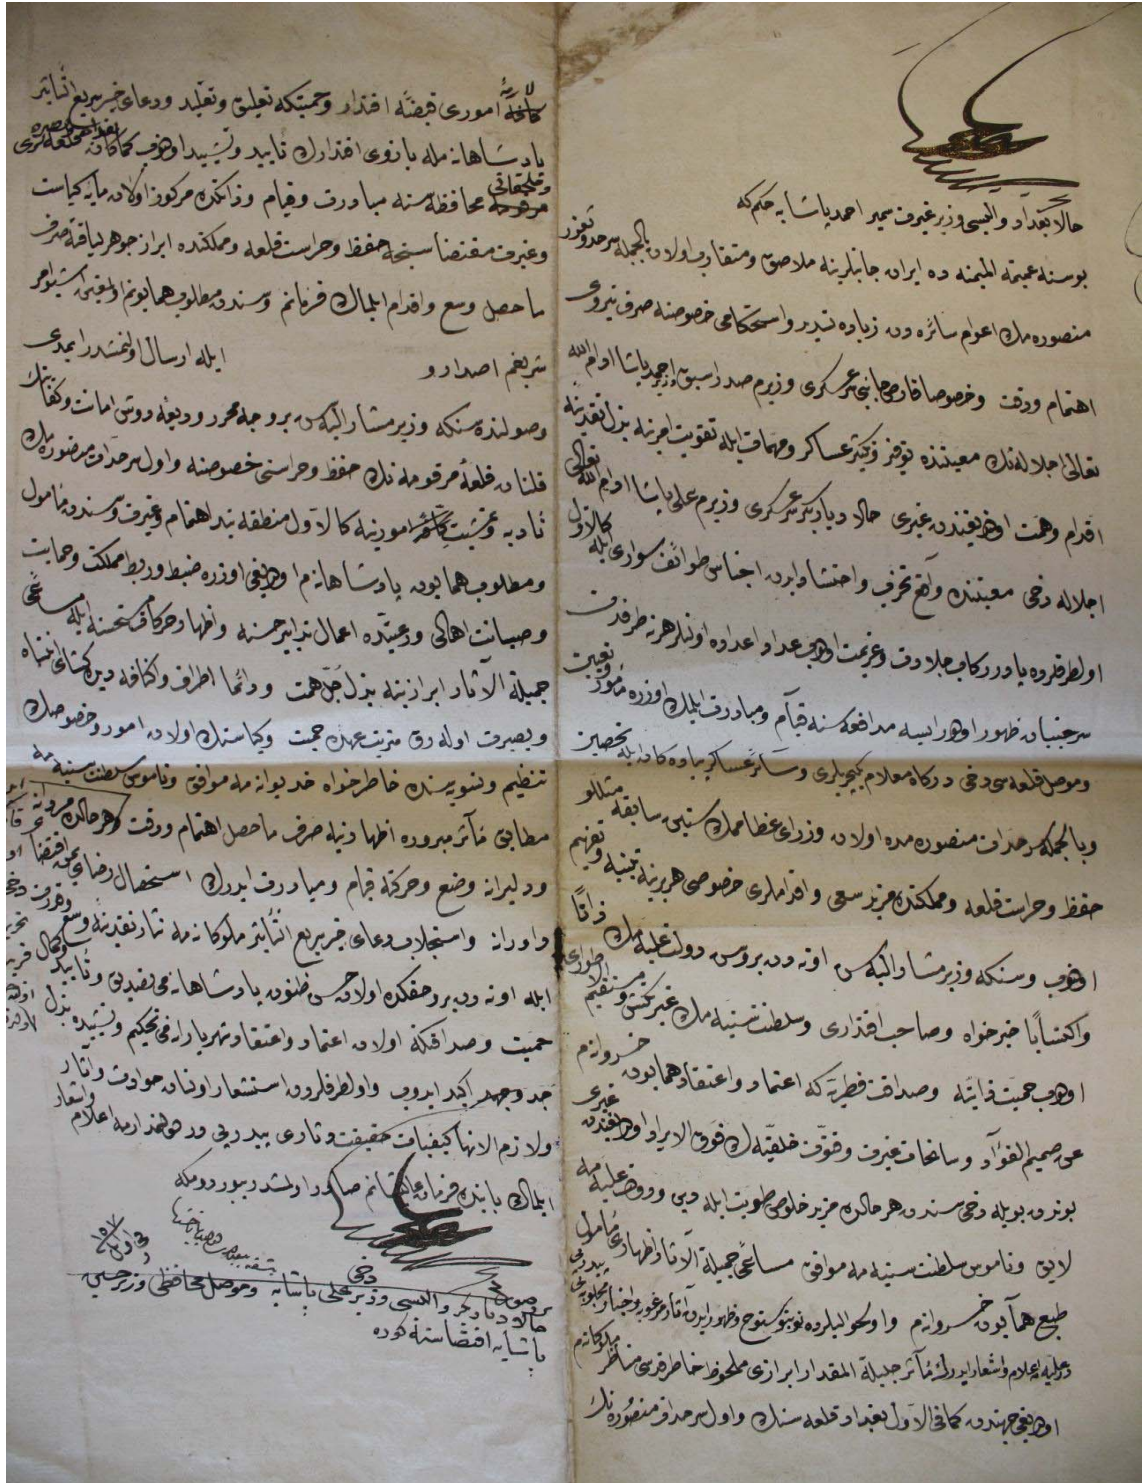 حالا بغداد واليسى وزير غيرت سمير احمد پاشايه حكم كه
بو سنهٔ عميمة الميمنه ده ايران جانبلرينه ملاصق ومتقارب اولان بالجمله سرحد وثغور
منصوره مك اعوام سائره دن زياده تدبير واستحكامى خصوصنه صرف نيروى
اهتمام ودقت وخصوصا قارص جانبى سرعسكرى وزيرم صدر اسبق احمد پاشا ادام الله
تعالى اجلاله نك معيتنده توفير وتكثير عساكر ومهمات ايله تقويت امرينه بذل نقدينهٔ
اقدام وهمت اولنديغندن غيرى حالا دياربكر سرعسكرى وزيرم على پاشا ادام الله تعالى
اجلاله دخى معيتنده واقع واحتشاد ايدن اجناس طوائف سوارى ايله كالاول
اولطرفلرده پا در ركاب جلادت وعزيمت اولوب اعداده اولنلر هر نه طرفدن
سرجنبان ظهور اولور ايسه مدافعه سنه قيام ومبادرت ايلمك اوزره مأمور وتعيين
وموصل قلعه سى دخى دركاه معلام يكيچريلرى وسائر عساكر پياده كان ايله تحصين
وبالجمله سرحدات منصوره مده اولان وزراى عظاممك سنين سابقه مثللو
حفظ وحراست قلعه ومملكتده مزيد سعى واقداملرى خصوصى هر برينه تنبيه وتفهيم
اولنوب وسنكه وزير مشار اليهسن اوته دن برو سن دولت عليه مك ذاتا
واكتسابا خيرخواه وصاحب اقتدارى وسلطنت سنيه مك غيرتكش ومستقيم الاطوارى
اولوب حميت ذاتيه وصداقت فطريه كه اعتماد واعتقاد همايون خسروانه م
عن صميم الفؤاد وسانحات غيرت وفتوت خلقيه ك فوق الايراد اولديغندن غيرى
بوندن بويله دخى سندن هر حالده مزيد خلوص طويت ايله دين ودولت عليه مه
لايق وناموس سلطنت سنيه مه موافق مساعئ جميلة الآثار اظهارى مأمول
طبع همايون خسروانه م واول حواليلرده نوبنو سنوح وظهور ايدن آثار مرغوبه واخبار مطلوبه يى پيدرپى
در عليه يه اعلام واشعار ايدرك مآثر جليلة المقدار ابرازى ملحوظ خاطر قدسى مناظر ملوكانه م
اولديغى جهتدن كما فى الاول بغداد قلعه سنك واول سرحدات منصوره نك
كافهٔ امورى قبضهٔ اقتدار وحميتكه تعليق وتقليد ودعاى خير سريع التأثير
پادشاهانه مله بازوى اقتدارك تأييد وتشييد اولنوب كماكان بغداد وبصره قلعه لرى
وملحقاتى محافظه سنه مبادرت وقيام وذاتكده مركوز اولان مايهٔ كياست
وغيرت مقتضاسنجه حفظ وحراست قلعه ومملكتده ابراز جوهر لياقته صرف
ما حصل وسع واقدام ايلمك فرمانم وسندن مطلوب همايونم اولمغين اشبو امر
شريفم اصدار و ايله ارسال اولنمشدر ايمدى
وصولنده سنكه وزير مشار اليهسن بر وجه محرر وديعهٔ دوش امانت وكفايتك
قلنان قلعهٔ مرقومه نك حفظ وحراستى خصوصنه واول سرحدات منصوره مك
تأديه وتمشيت امورينه كالاول منطقه بند اهتمام وغيرت وسندن مأمول
ومطلوب همايون پادشاهانه م اولديغى اوزره ضبط وربط مملكت وحمايت
وصيانت اهالى ورعيتده اعمال تدابير حسنه واظهار حركات مستحسنه ايله مساعئ
جميلة الآثار ابرازينه بذل جل همت ودائما اطراف واكنافه ديده كشاى انتباه
وبصيرت اوله رق مزيت عهدهٔ حميت وكياستك اولان امور وخصوصك
تنظيم وتسويه سنده خاطرخواه خديوانه مه موافق وناموس سلطنت سنيه مه
مطابق مآثر مبروره اظهارينه صرف ما حصل اهتمام ودقت وهر حالده مردانه
ودليرانه وضع وحركته قيام ومبادرت ايدرك استحصال رضاى
داورانه واستجلاب دعاى خير سريع التأثير ملوكانه مه نثار نقدينهٔ وسع
ايله اوته دن برو حقكده اولان حسن ظنون پادشاهانه مى تصديق وتأييد وكمال
حميت وصداقتكه اولان اعتماد واعتقاد شهريارانه مى تحكيم وتشييده بذل
جد وجهد اكيد ايدوب واولطرفلردن استشعار اولنان حوادث وآثار
ولازم الانها كيفيات حقيقت دثارى پيدرپى در دولتمدارمه اعلام واشعار
ايلمك بابنده فرمان عاليشانم صادر اولمشدر بيوردم كه
بر صورتى
حالا دياربكر واليسى وزير على پاشايه دخى وموصل محافظى وزير حسين
پاشايه اقتضاسنه كوره